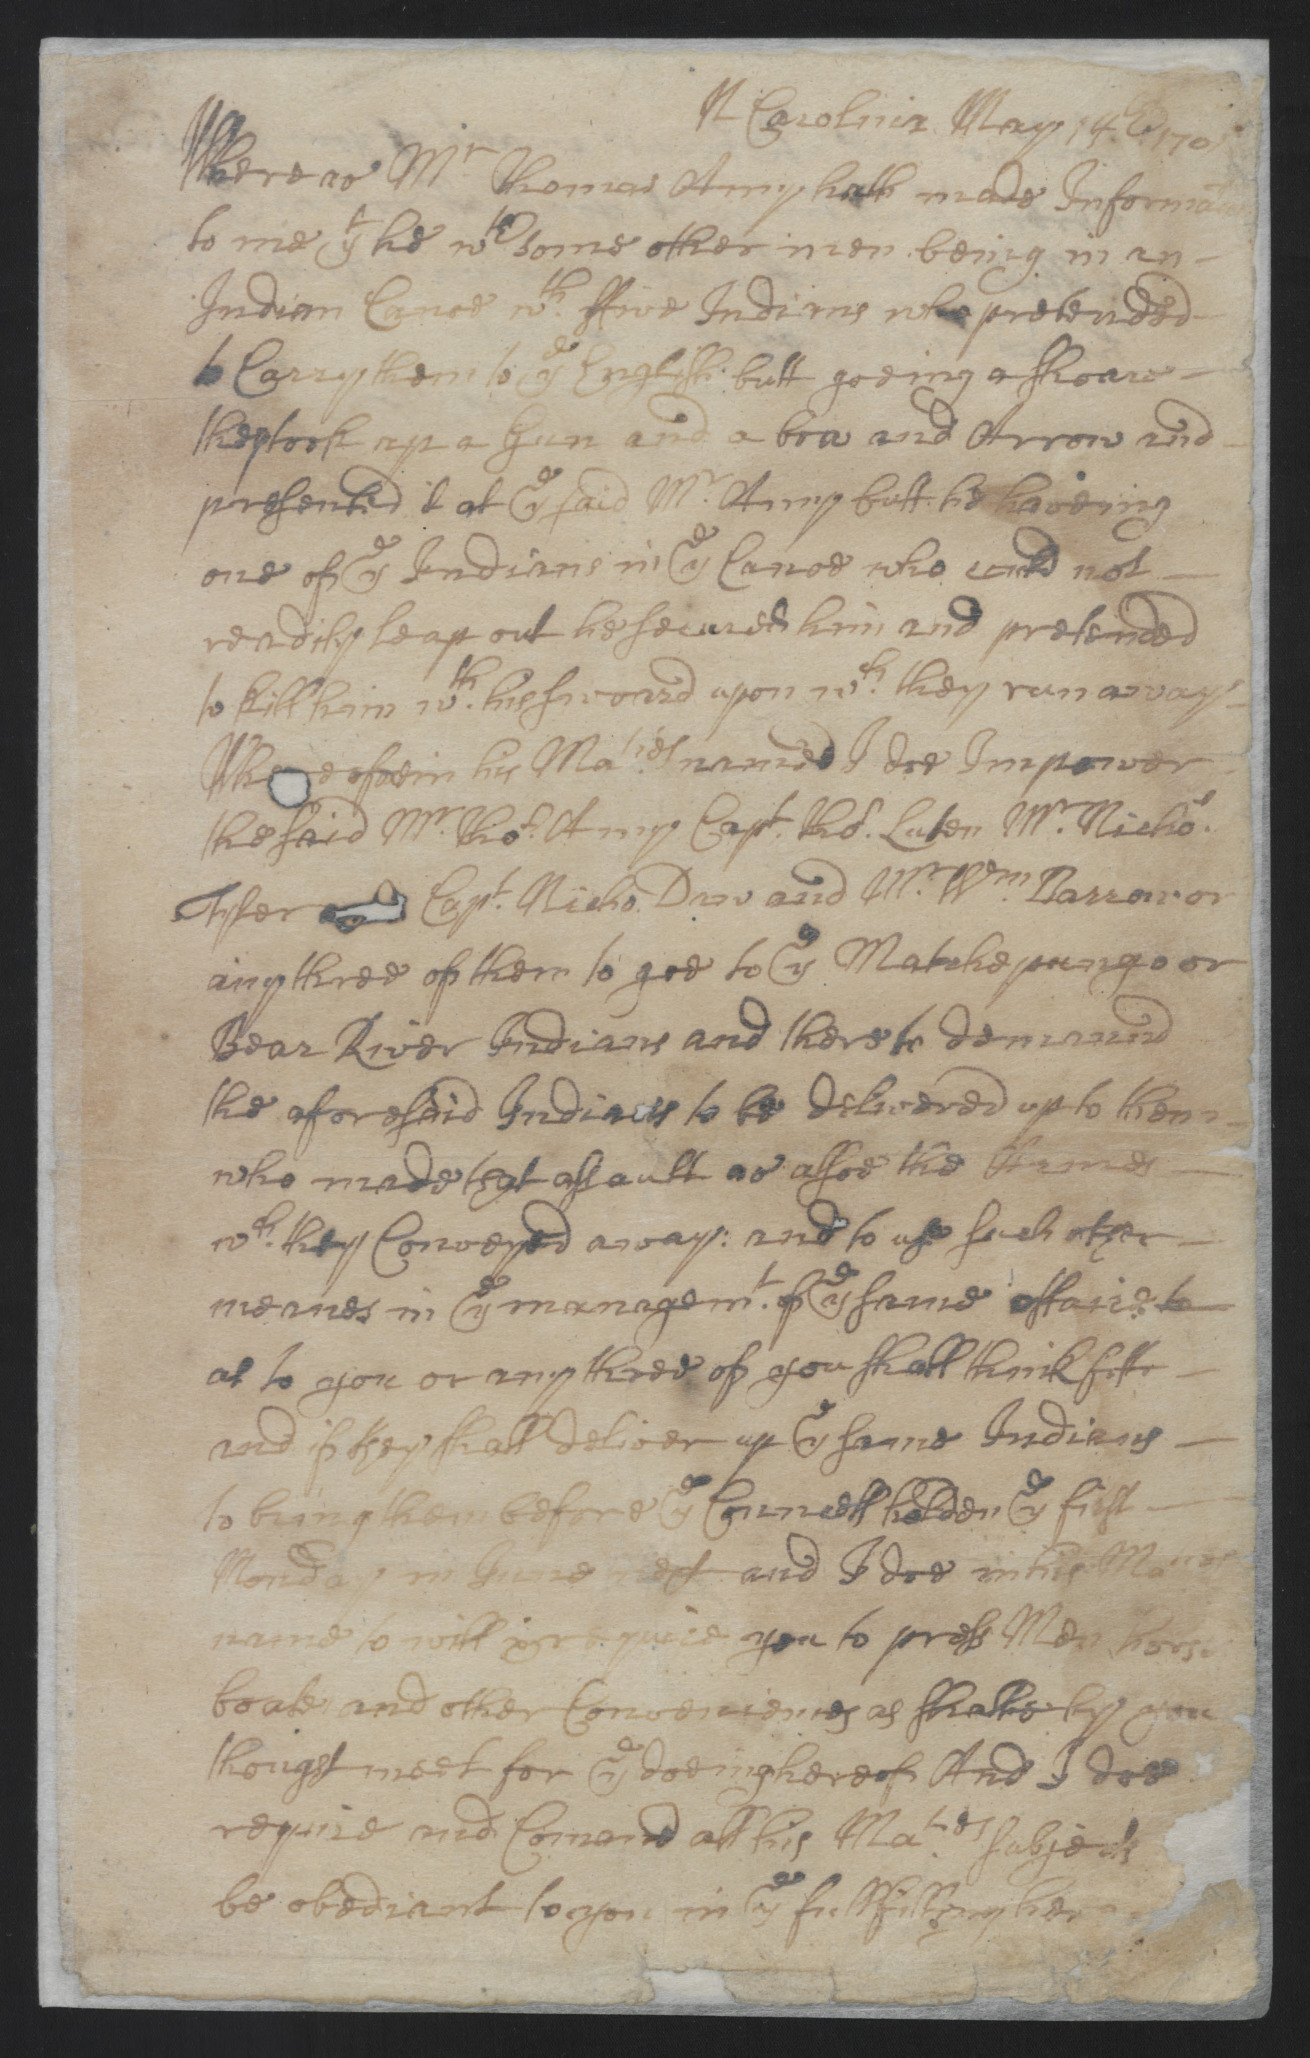 N Carolina May 14th 170
Whereas Mr Thomas Amy hath made Informa
to me yt he wth some other men being in an
Indian Canoe wth ffive Indians who pretended
to Carry them to ye English butt goeing a shoare
they took up a Gun and a bow and Arrow and
presented it at ye said Mr Amy butt he haveing
one of ye Indians in ye Canoe who could not
readily leap out he secured him and pretended
to kill him wth his sword upon wch they run away
Wherefore in his Maties name I doe Impower
the said Mr Tho: Amy Capt Tho: Luten Mr Nicho
Tyler Capt Nicho Daw and Mr Wm Barrow or
any three of them to goe to ye Matchepungo or
Bear River Indians and there to demannd
the aforesaid Indians to be delivered up to them
who made that assault as allsoe the Armes
wch they Conveyed away: and to use such other
meanes in ye managemt of ye same affaire
as to you or any three of you shall think fitt
and if they shall deliver up ye same Indians
to bring them before ye Councell holden ye first
Monday in June next and I doe in his Maties
name to will & require you to press Men horse
boate and other Conveniences as shalbe by you
thought meet for ye doeing hereof And I doe
require and Comand all his Maties subjects
be obediant to you in ye fullfilling her